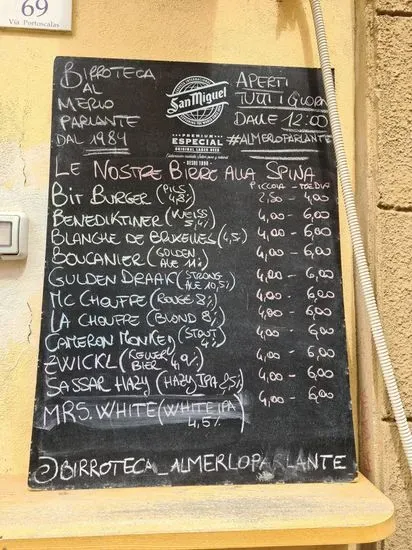 69
Via Portoscalas
BIRROTECA
AL
MERLO
PARLANTE
DAL 1984
San Miguel
PREMIUM
ESPECIAL
ORIGINAL LAGER BEER
DESDE 1890
APERTI
TUTTI I GIORNI
DALLE 12:00
#ALMERLOPARLANTE
LE NOSTRE BIRRE ALLA SPINA
PICCOLA - MEDIA
BIT BURGER (PILS 4,8%) 2,50 - 4,00
BENEDIKTINER (WEISS 5,4%) 4,00 - 6,00
BLANCHE DE BRUXELLES (4,5%) 4,00 - 6,00
BOUCANIER (GOLDEN ALE 11%) 4,00 - 6,00
GULDEN DRAAK (STRONG ALE 10,5%) 4,00 - 6,00
MC CHOUFFE (ROUGE 8%) 4,00 - 6,00
LA CHOUFFE (BLOND 8%) 4,00 - 6,00
CAMERON MONKEY (STOUT 4%) 4,00 - 6,00
ZWICKL (KELLER BIER 4,9%) 4,00 - 6,00
SASSAR HAZY (HAZY IPA 5,5%) 4,00 - 6,00
MRS. WHITE (WHITE IPA 4,5% 4,00 - 6,00
@BIRROTECA_ALMERLOPARLANTE